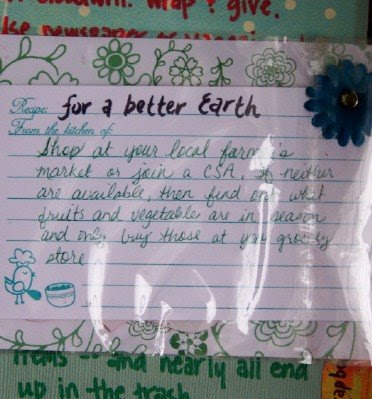 wrap & give.
Recipe: for a better Earth
From the kitchen of:
Shop at your local farmer's
market or join a CSA. If neither
are available, then find out what
fruits and vegetables are in season
and only buy those at your grocery
store
items -- and nearly all end
up in the trash.